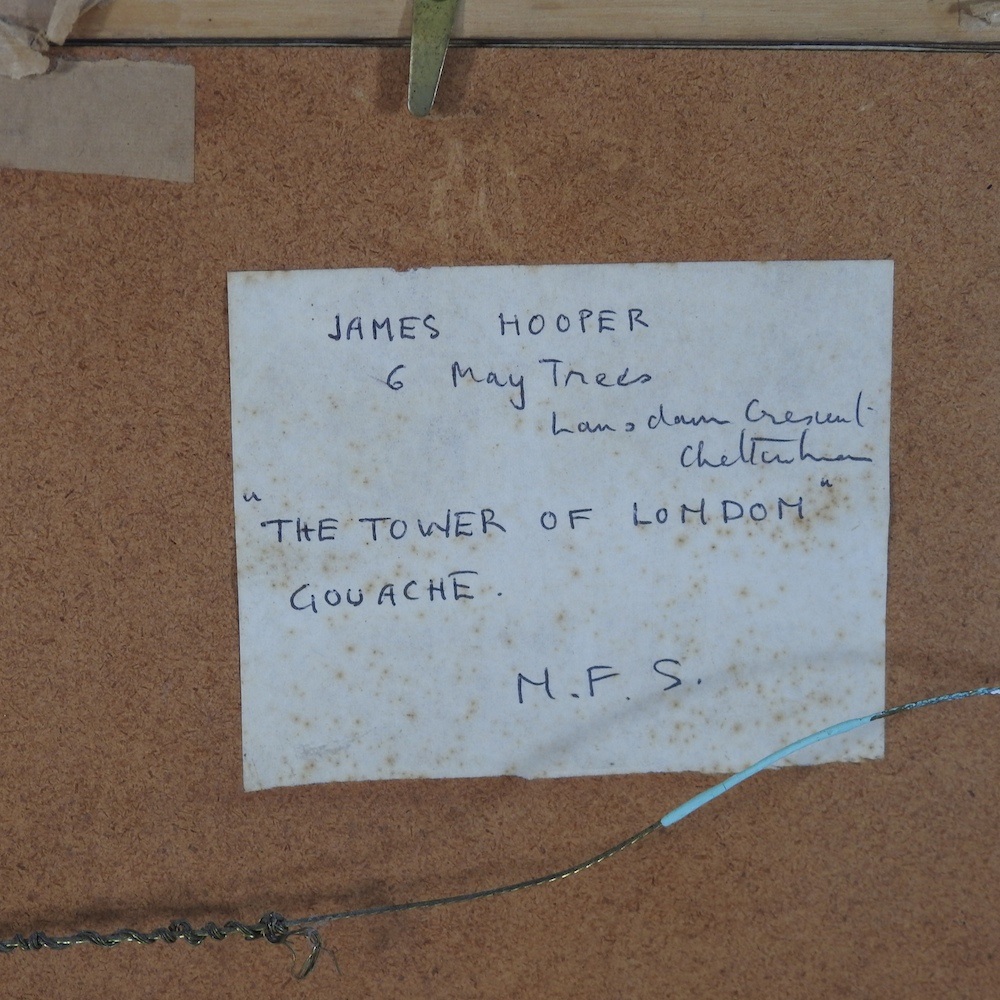 JAMES HOOPER
6 May Trees
Lansdown Crescent
Cheltenham
"THE TOWER OF LONDON"
GOUACHE.
N.F.S.